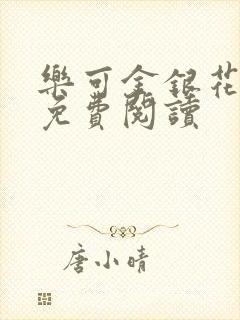 樂可金銀花
免費閱讀
唐小晴